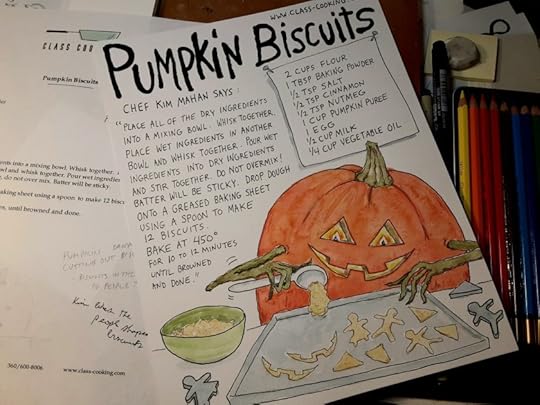 www.class-cooking
PUMPKIN BISCUITS
CHEF KIM MAHAN SAYS:
"PLACE ALL OF THE DRY INGREDIENTS
INTO A MIXING BOWL. WHISK TOGETHER.
PLACE WET INGREDIENTS IN ANOTHER
BOWL AND WHISK TOGETHER. POUR WET
INGREDIENTS INTO DRY INGREDIENTS
AND STIR TOGETHER. DO NOT OVERMIX!
BATTER WILL BE STICKY. DROP DOUGH
ONTO A GREASED BAKING SHEET
USING A SPOON TO MAKE
12 BISCUITS.
BAKE AT 450°
FOR 10 TO 12 MINUTES
UNTIL BROWNED
AND DONE."
2 CUPS FLOUR
1 TBSP BAKING POWDER
1/2 TSP SALT
1/2 TSP CINNAMON
1/2 TSP NUTMEG
1 CUP PUMPKIN PUREE
1 EGG
1/2 CUP MILK
1/4 CUP VEGETABLE OIL
CLASS COO
Pumpkin Biscuits
ents into a mixing bowl. Whisk together.
and whisk together. Pour wet ingredien
do not over mix. Batter will be sticky.
aking sheet using a spoon to make 12 bisc
es, until browned and done.
PUMPKIN
CUTTING OUT
BISCUITS IN THE
TO PEOPLE
Kim likes the
people shapes
biscuits
360/600-8006
www.class-cooking.com